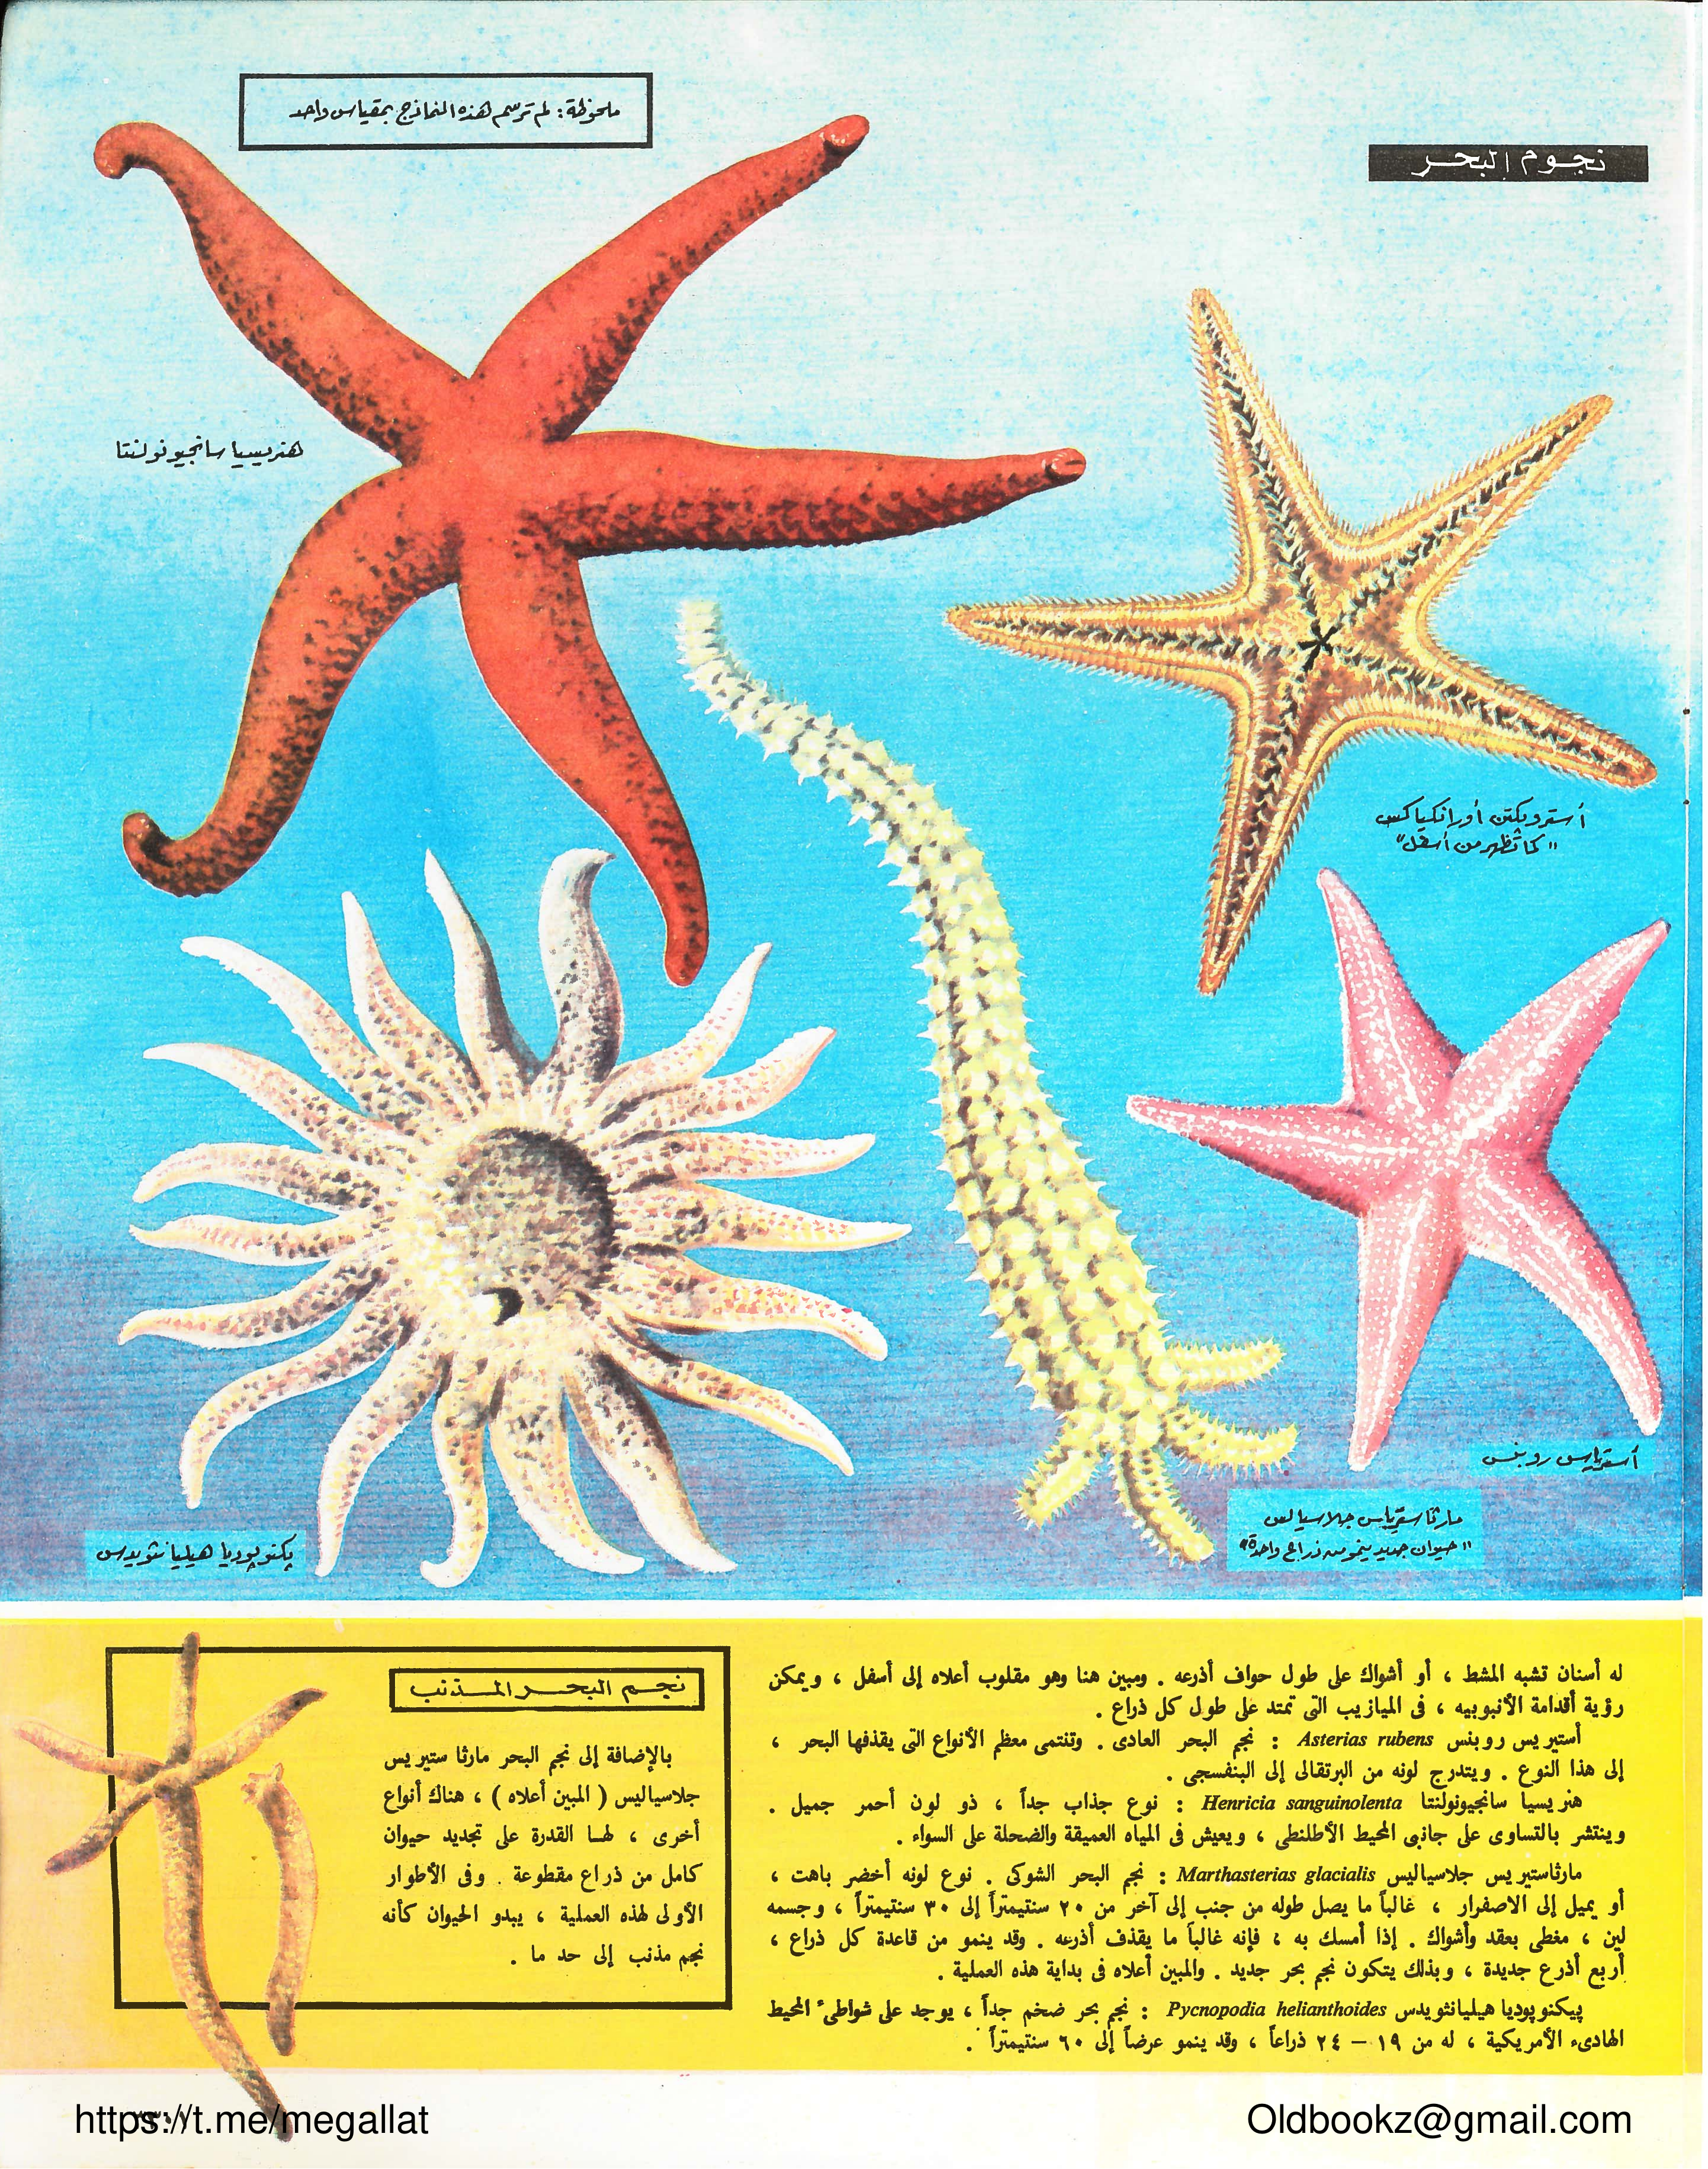 ملحوظة: لم ترسم هذه النماذج بمقياس واحد
نجوم البحر
هنريسيا سانجيونولنتا
أستروپكتن أورانكياكس
"كما تظهر من أسفل"
أسترياس روبنس
مارثاسترياس جلاسيالس
"حيوان جديد ينمو من ذراع واحدة"
پكنوپوديا هيليانثويدس
له أسنان تشبه المشط ، أو أشواك على طول حواف أذرعه . ومبين هنا وهو مقلوب أعلاه إلى أسفل ، ويمكن
رؤية أقدامة الأنبوبيه ، فى الميازيب التى تمتد على طول كل ذراع .
أستيريس روبنس Asterias rubens : نجم البحر العادى . وتنتمى معظم الأنواع التى يقذفها البحر ،
إلى هذا النوع . ويتدرج لونه من البرتقالى إلى البنفسجى .
هنريسيا سانجيونولنتا Henricia sanguinolenta : نوع جذاب جداً ، ذو لون أحمر جميل .
وينتشر بالتساوى على جانبى المحيط الأطلنطى ، ويعيش فى المياه العميقة والضحلة على السواء .
مارثاستيريس جلاسياليس Marthasterias glacialis : نجم البحر الشوكى . نوع لونه أخضر باهت ،
أو يميل إلى الاصفرار ، غالباً ما يصل طوله من جنب إلى آخر من ٢٠ سنتيمتراً إلى ٣٠ سنتيمتراً ، وجسمه
لين ، مغطى بعقد وأشواك . إذا أمسك به ، فإنه غالباً ما يقذف أذرعه . وقد ينمو من قاعدة كل ذراع ،
أربع أذرع جديدة ، وبذلك يتكون نجم بحر جديد . والمبين أعلاه فى بداية هذه العملية .
پيكنوپوديا هيليانثويدس Pycnopodia helianthoides : نجم بحر ضخم جداً ، يوجد على شواطىء المحيط
الهادىء الأمريكية ، له من ١٩ – ٢٤ ذراعاً ، وقد ينمو عرضاً إلى ٦٠ سنتيمتراً .
نجم البحر المذنب
بالإضافة إلى نجم البحر مارثا ستيريس
جلاسياليس ( المبين أعلاه ) ، هناك أنواع
أخرى ، لها القدرة على تجديد حيوان
كامل من ذراع مقطوعة . وفى الأطوار
الأولى لهذه العملية ، يبدو الحيوان كأنه
نجم مذنب إلى حد ما .
https://t.me/megallat
Oldbookz@gmail.com